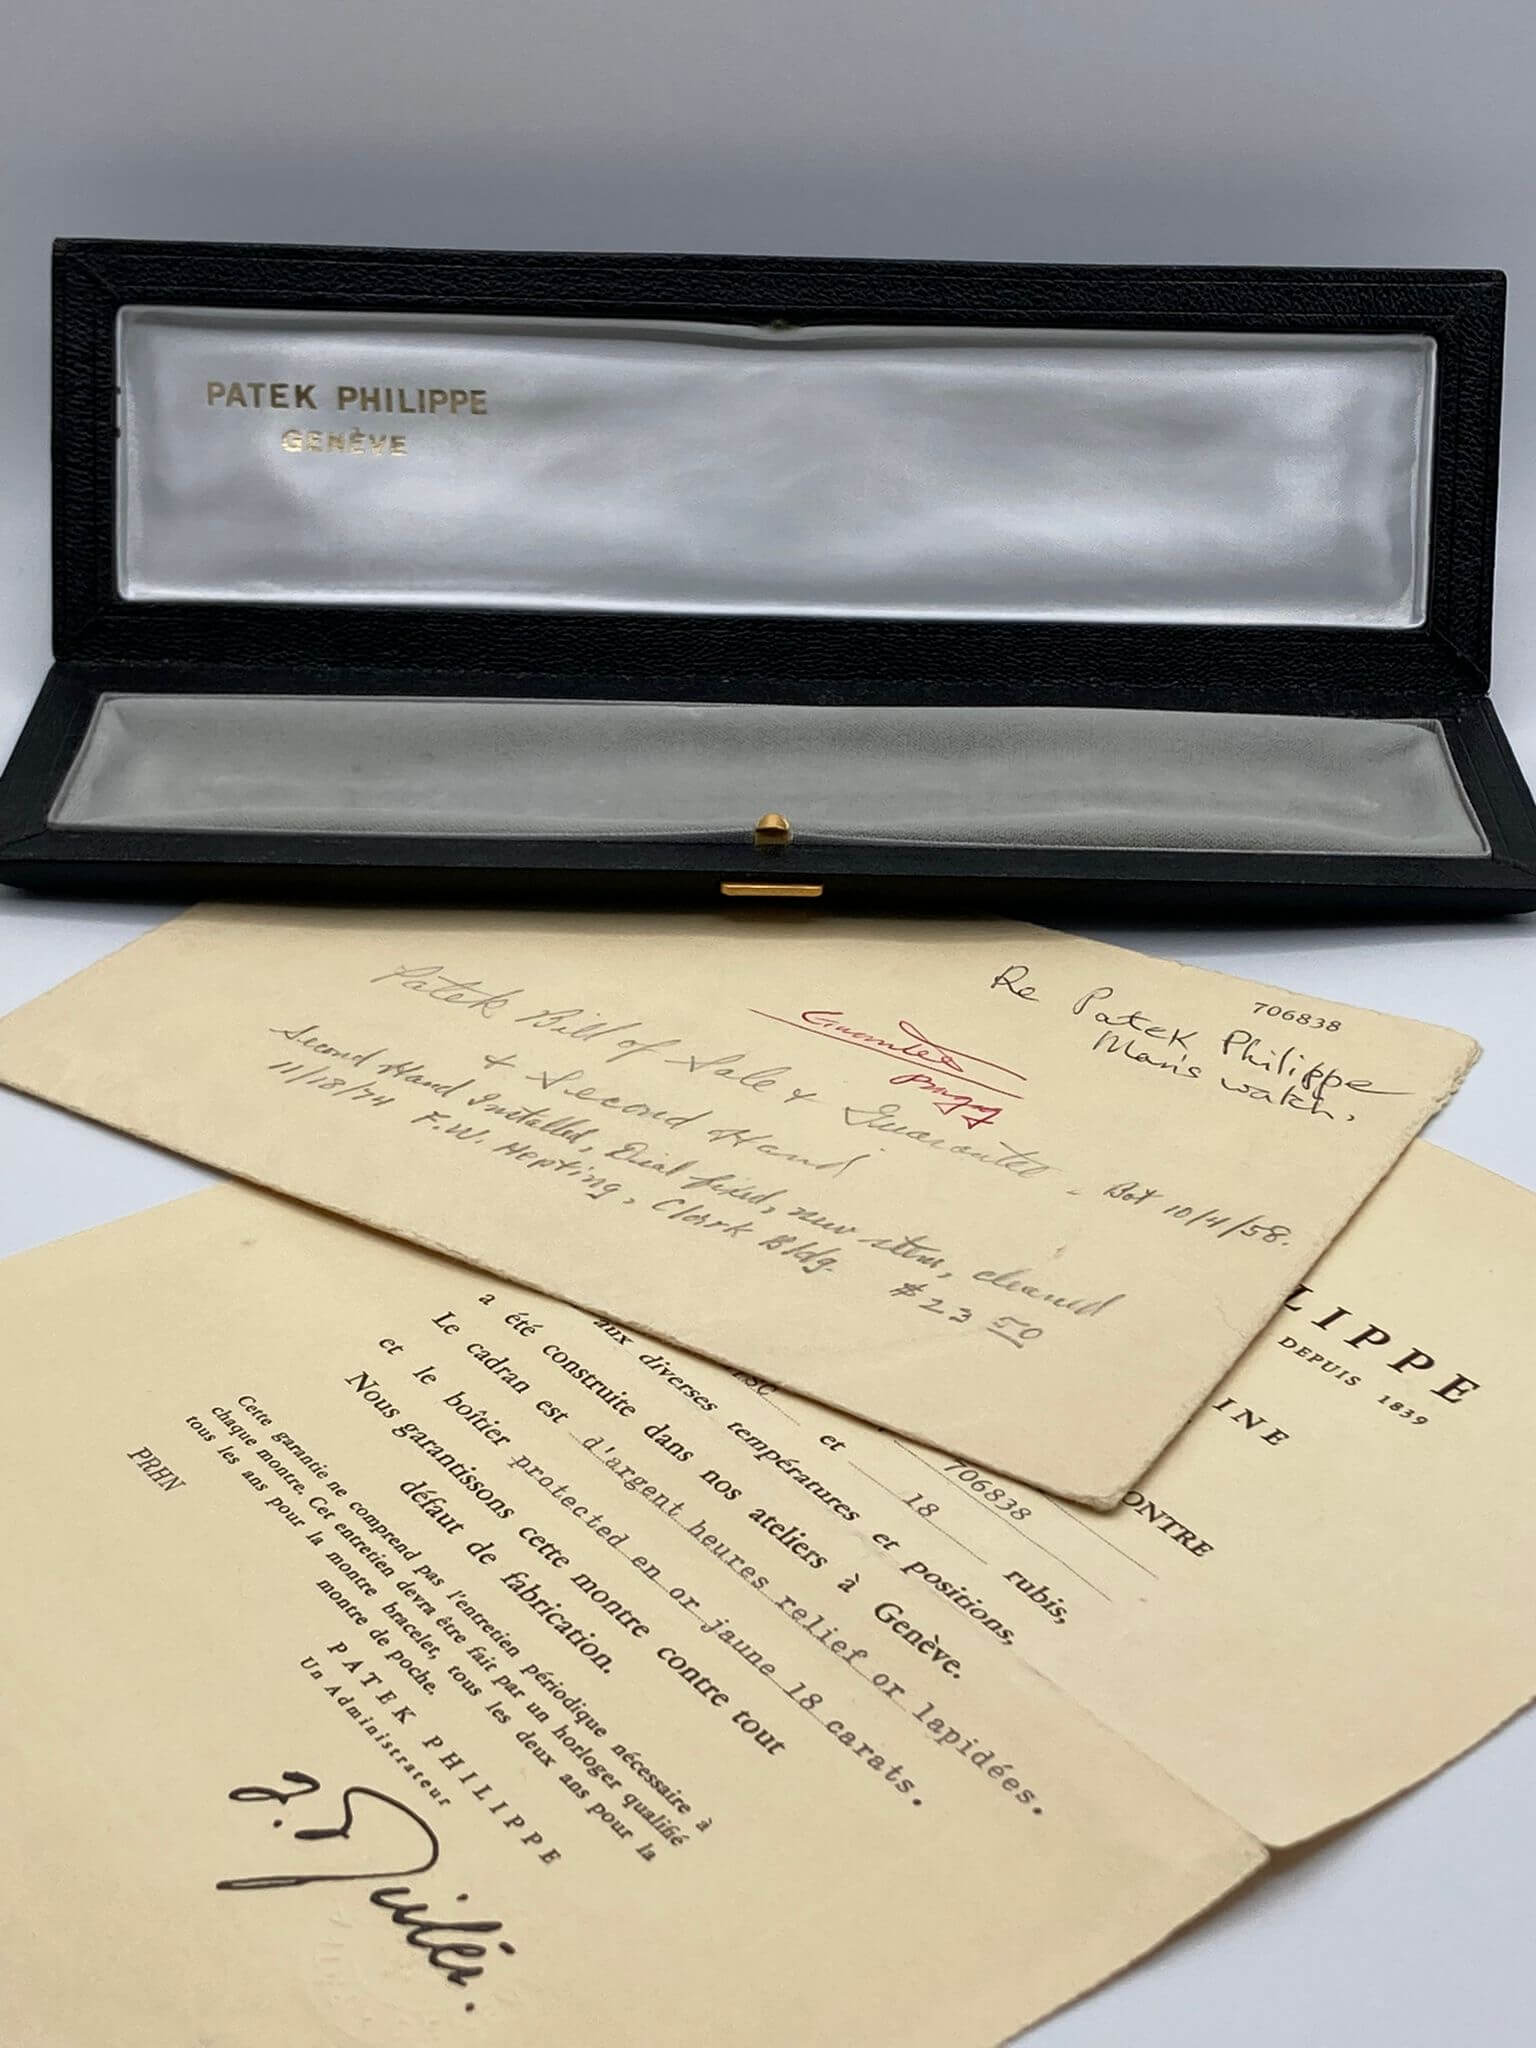 PATEK PHILIPPE
GENÈVE
706838
Re Patek Philippe
Man's watch.
Patek Bill of Sale & Guarantee - Bot 10/4/58.
& Second Hand
Second Hand Installed, Dial fixed, new stem, cleaned
11/18/74 F.W. Hepting, Clark Bldg. $23 50
LIPPE
DEPUIS 1839
INE
ONTRE
706838
18 rubis,
et
aux diverses températures et positions,
a été construite dans nos ateliers à Genève.
Le cadran est d'argent heures relief or lapidées.
et le boîtier protected en or jaune 18 carats.
Nous garantissons cette montre contre tout
défaut de fabrication.
Cette garantie ne comprend pas l'entretien périodique nécessaire à
chaque montre. Cet entretien devra être fait par un horloger qualifié
tous les ans pour la montre bracelet, tous les deux ans pour la
montre de poche.
PRHN
PATEK PHILIPPE
Un Administrateur